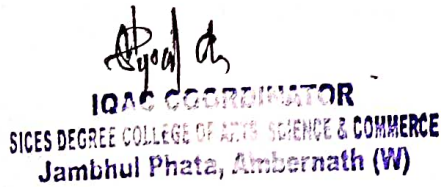 IQAC COORDINATOR
SICES DEGREE COLLEGE OF ARTS SCIENCE & COMMERCE
Jambhul Phata, Ambernath (W)